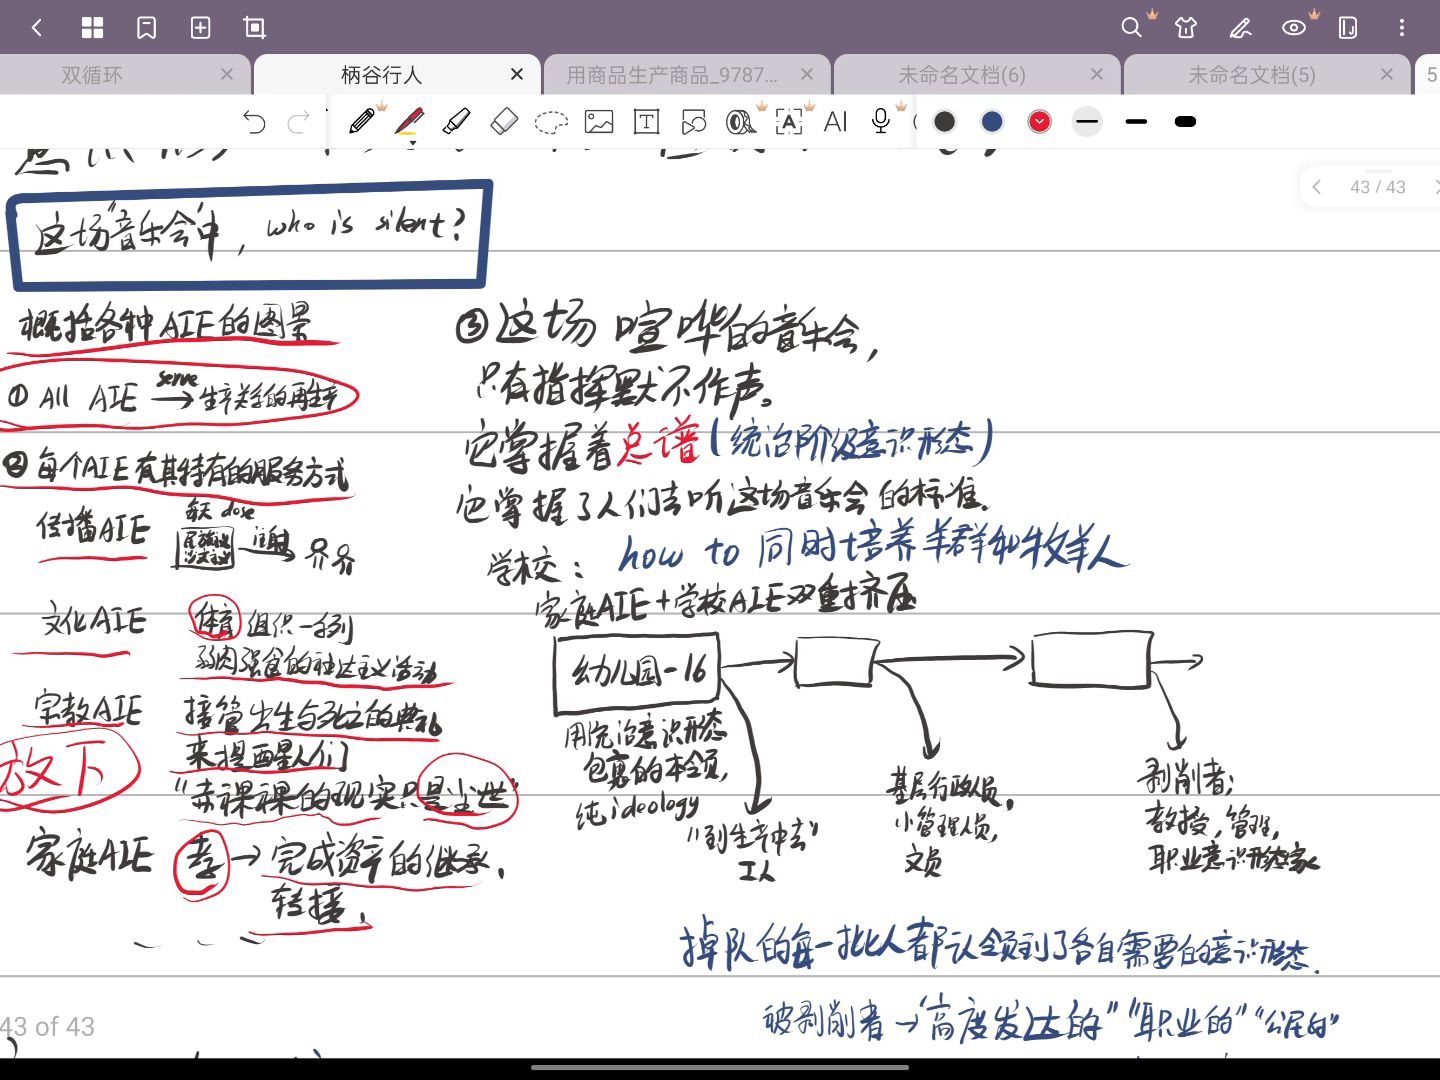 双循环
柄谷行人
用商品生产商品_9787...
未命名文档(6)
未命名文档(5)
5
AI
43 / 43
这场"音乐会"中, who is silent?
概括各种AIE的图景
① All AIE serve → 生产关系的再生产
② 每个AIE有其特有的服务方式
传播AIE
每天 dose
文化AIE
体育 组织一系列
弱肉强食的种族主义活动
宗教AIE
接管出生与死亡的典礼
来提醒人们
放下
"赤裸裸的现实只是尘世"
家庭AIE 孝 → 完成资产的继承,
转接.
43 of 43
③ 这场喧哗的音乐会,
只有指挥默不作声。
它掌握着总谱(统治阶级意识形态)
它掌握了人们去听这场音乐会的标准.
学校: how to 同时培养羊群和牧羊人
家庭AIE+学校AIE双重挤压
幼儿园-16
用统治意识形态
包裹的本领,
纯ideology
"到生产中去"
工人
基层行政人员,
小管理人员,
文员
剥削者;
教授,管理,
职业意识形态家
掉队的每一批人都认领到了各自需要的意识形态.
被剥削者 → "高度发达的" "职业的" "公民的"